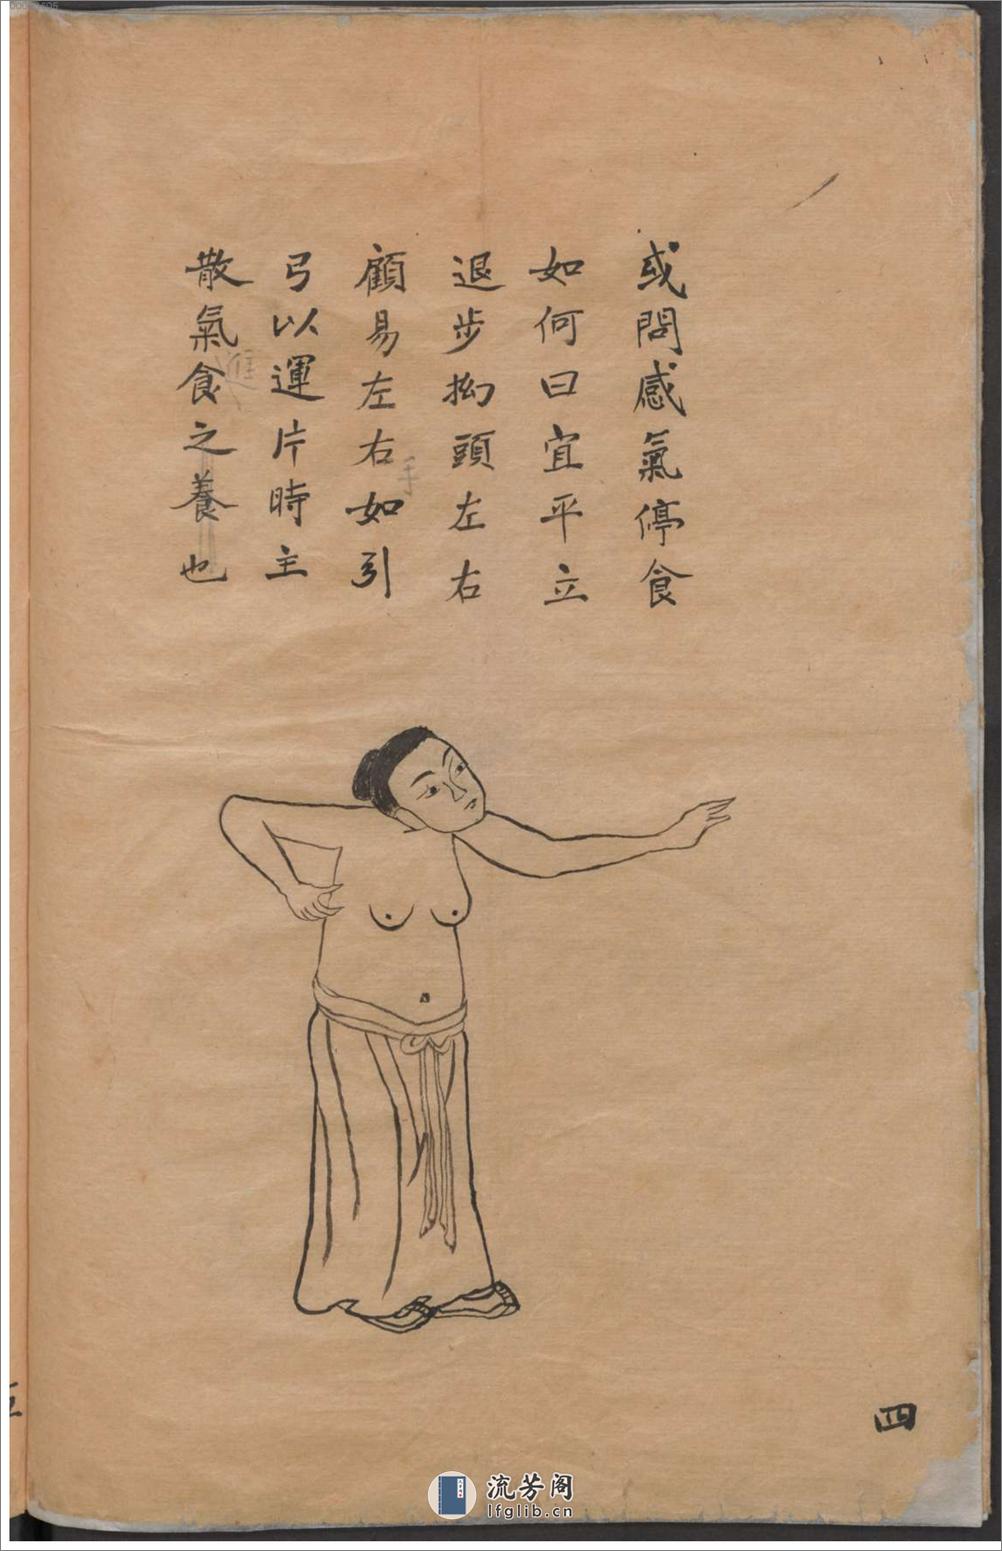 或問感氣停食
如何曰宜平立
退步拗頭左右
顧易左右如引
弓以運片時主
散氣食之養也
四
五
流芳阁
lfglib.cn